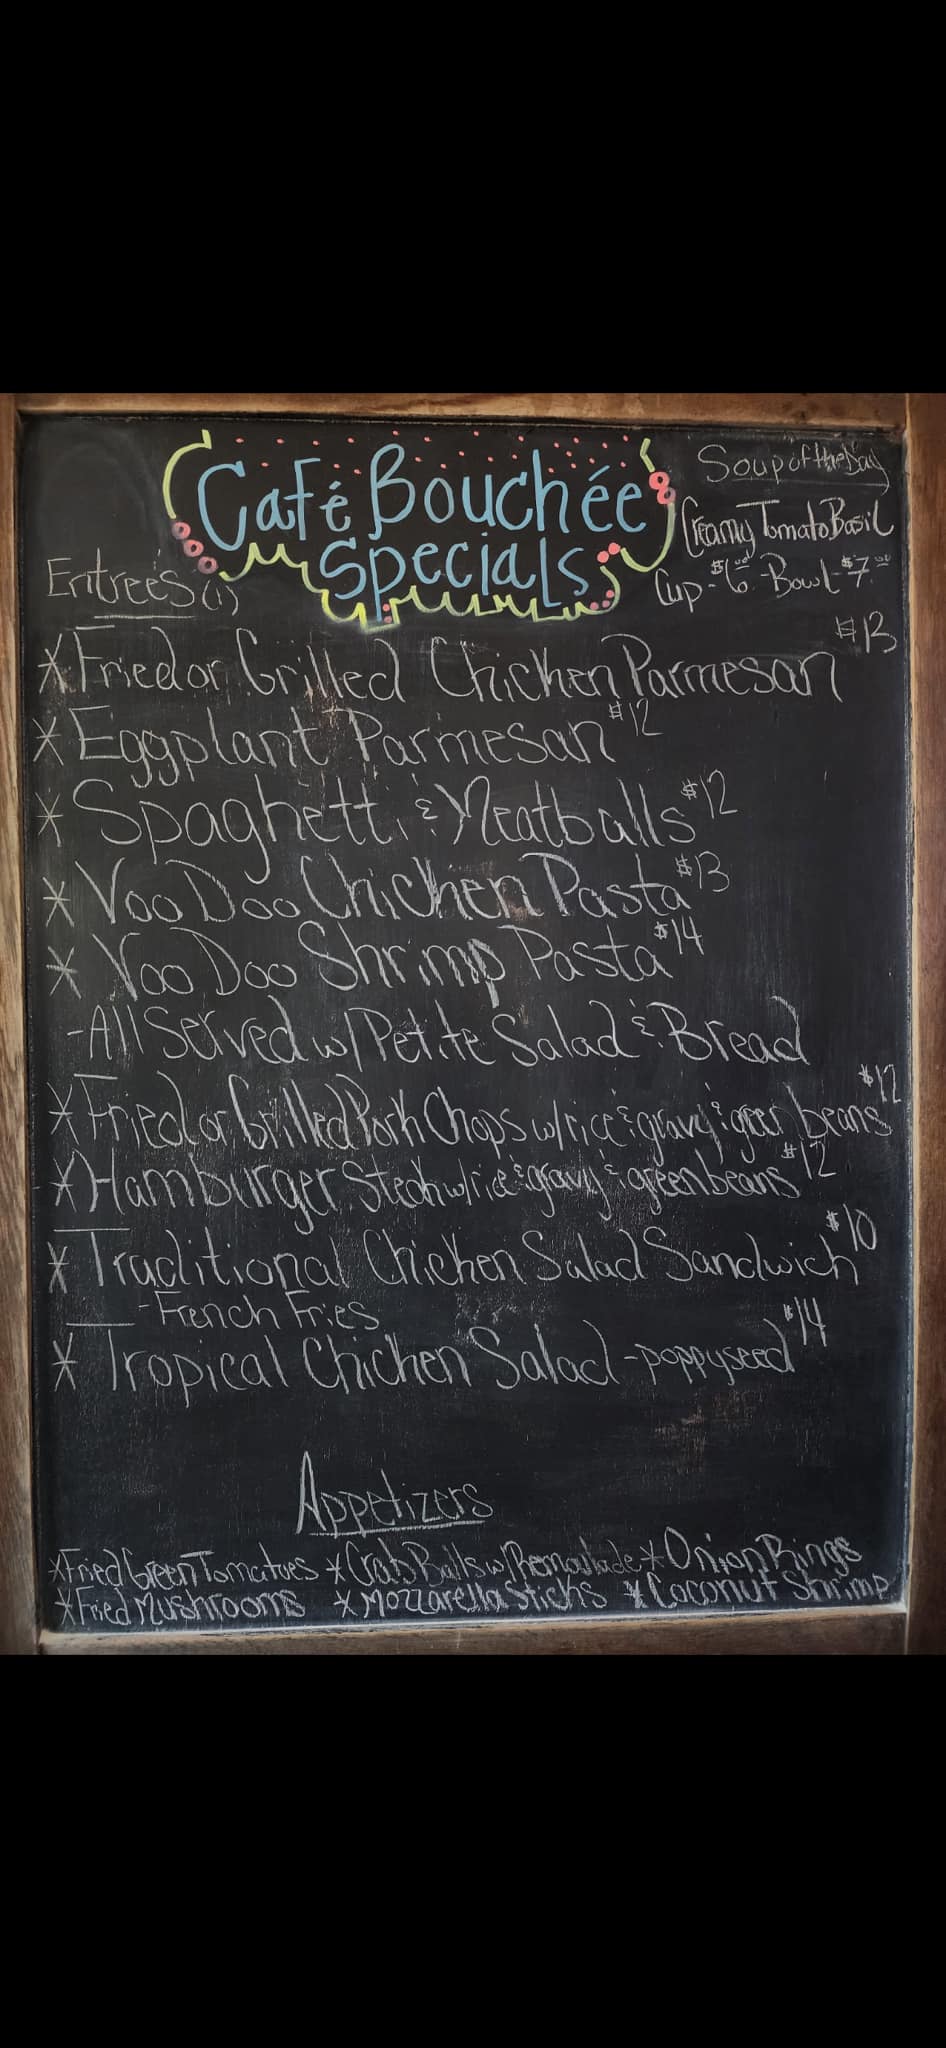 Café Bouchée
Specials
Soup of the Day
Creamy Tomato Basil
Cup-$6.00-Bowl-$7.00
Entreés (1)
*Fried or Grilled Chicken Parmesan $13
*Eggplant Parmesan $12
*Spaghetti & Meatballs $12
*VooDoo Chicken Pasta $13
*VooDoo Shrimp Pasta $14
-All Served w/Petite Salad & Bread
*Fried or Grilled Pork Chops w/rice & gravy & green beans $12
*Hamburger Steak w/rice & gravy & green beans $12
*Traditional Chicken Salad Sandwich $10
-French Fries
*Tropical Chicken Salad-poppyseed $14
Appetizers
*Fried Green Tomatoes *Crab Balls w/Remoulade *Onion Rings
*Fried Mushrooms *Mozzarella Sticks *Coconut Shrimp